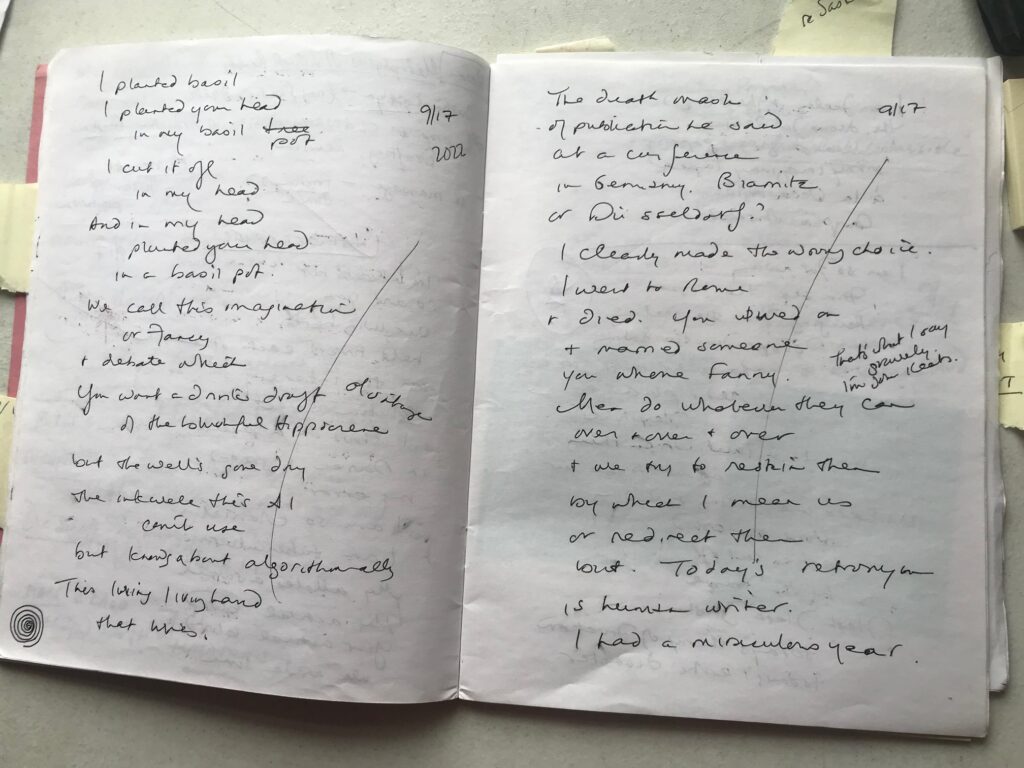 I planted basil
I planted your head
in my basil tree
pot
9/17
2022
I cut it off
in my head
And in my head
planted your head
in a basil pot.
We call this imagination
or Fancy
+ debate which
You want a draft of vintage
of the blushful Hippocrene
but the well's gone dry
the inkwell this AI
can't use
but knows about algorithmically
This living hand
that writes.
re
The death mask
9/17
of publication he said
at a conference
in Germany. Biarritz
or Düsseldorf?
I clearly made the wrong choice.
I went to Rome
+ died. You lived on
+ married someone
you whom Fanny.
That's what I say
gravely
I'm John Keats.
Men do whatever they can
over + over + over
+ we try to them
by which I mean us
or redirect them
but. Today's retronym
is human writer.
I had a miraculous year.